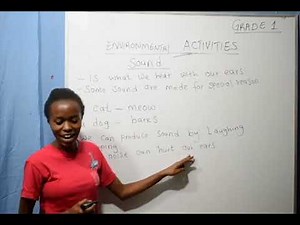 GRADE 1
ENVIRONMENTAL ACTIVITIES
Sound
- Is what we hear with our ears
- Some sound are made for special reason
cat - meow
dog - barks
can produce sound by laughing
noise can hurt our ears